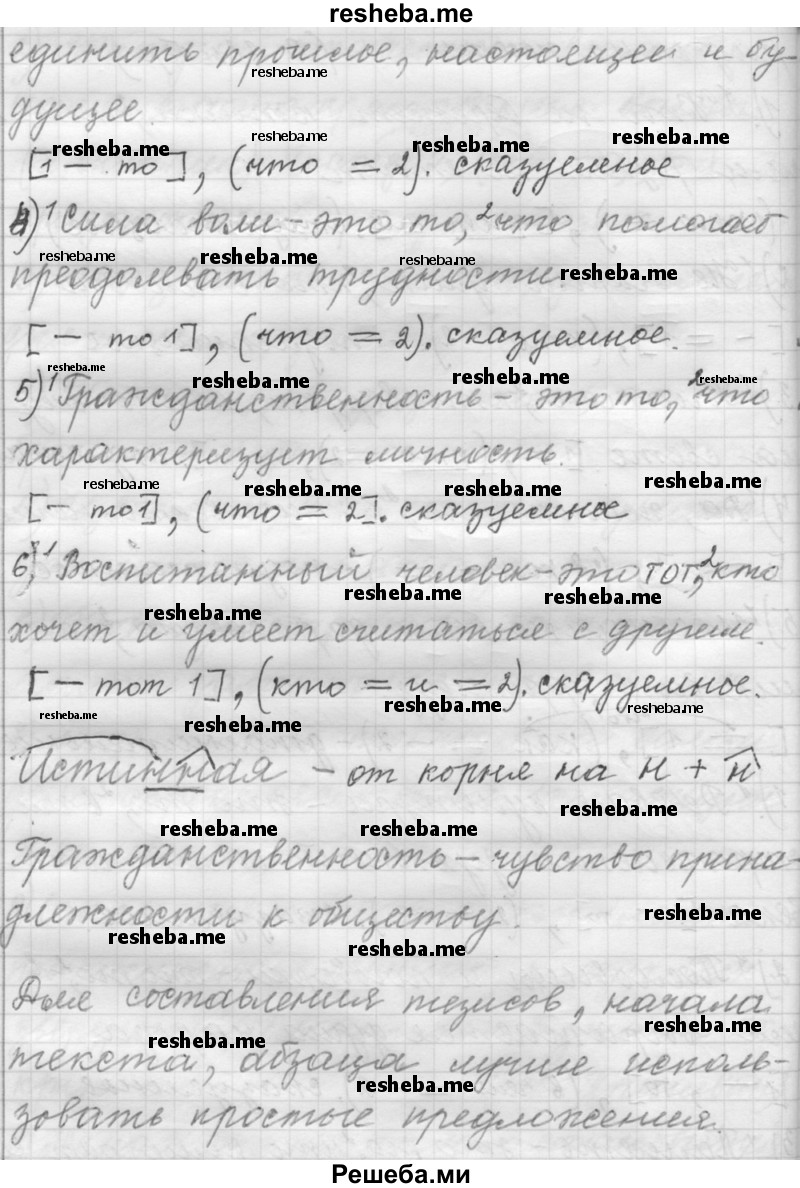 resheba.me
единить прошлое, настоящее и бу-
resheba.me
дущее.
resheba.me resheba.me resheba.me resheba.me
[1 – то], (что = 2). сказуемное
4) ¹Сила воли – это то, ²что помогает
resheba.me resheba.me resheba.me resheba.me
преодолевать трудности.
[ – то 1], (что = 2). сказуемное.
resheba.me resheba.me resheba.me resheba.me
5) ¹Гражданственность – это то, ²что
характеризует личность.
resheba.me resheba.me resheba.me resheba.me
[ – то 1], (что = 2]. сказуемное
6) ¹Воспитанный человек – это тот, ²кто
resheba.me resheba.me resheba.me
хочет и умеет считаться с другими.
[ – тот 1], (кто = и = 2). сказуемное.
resheba.me resheba.me resheba.me resheba.me
Истинная – от корня на н + н
resheba.me resheba.me resheba.me
Гражданственность – чувство прина-
длежности к обществу.
resheba.me resheba.me resheba.me
Для составления тезисов, начала
resheba.me resheba.me
текста, абзаца лучше исполь-
resheba.me
зовать простые предложения.
Решеба.ми